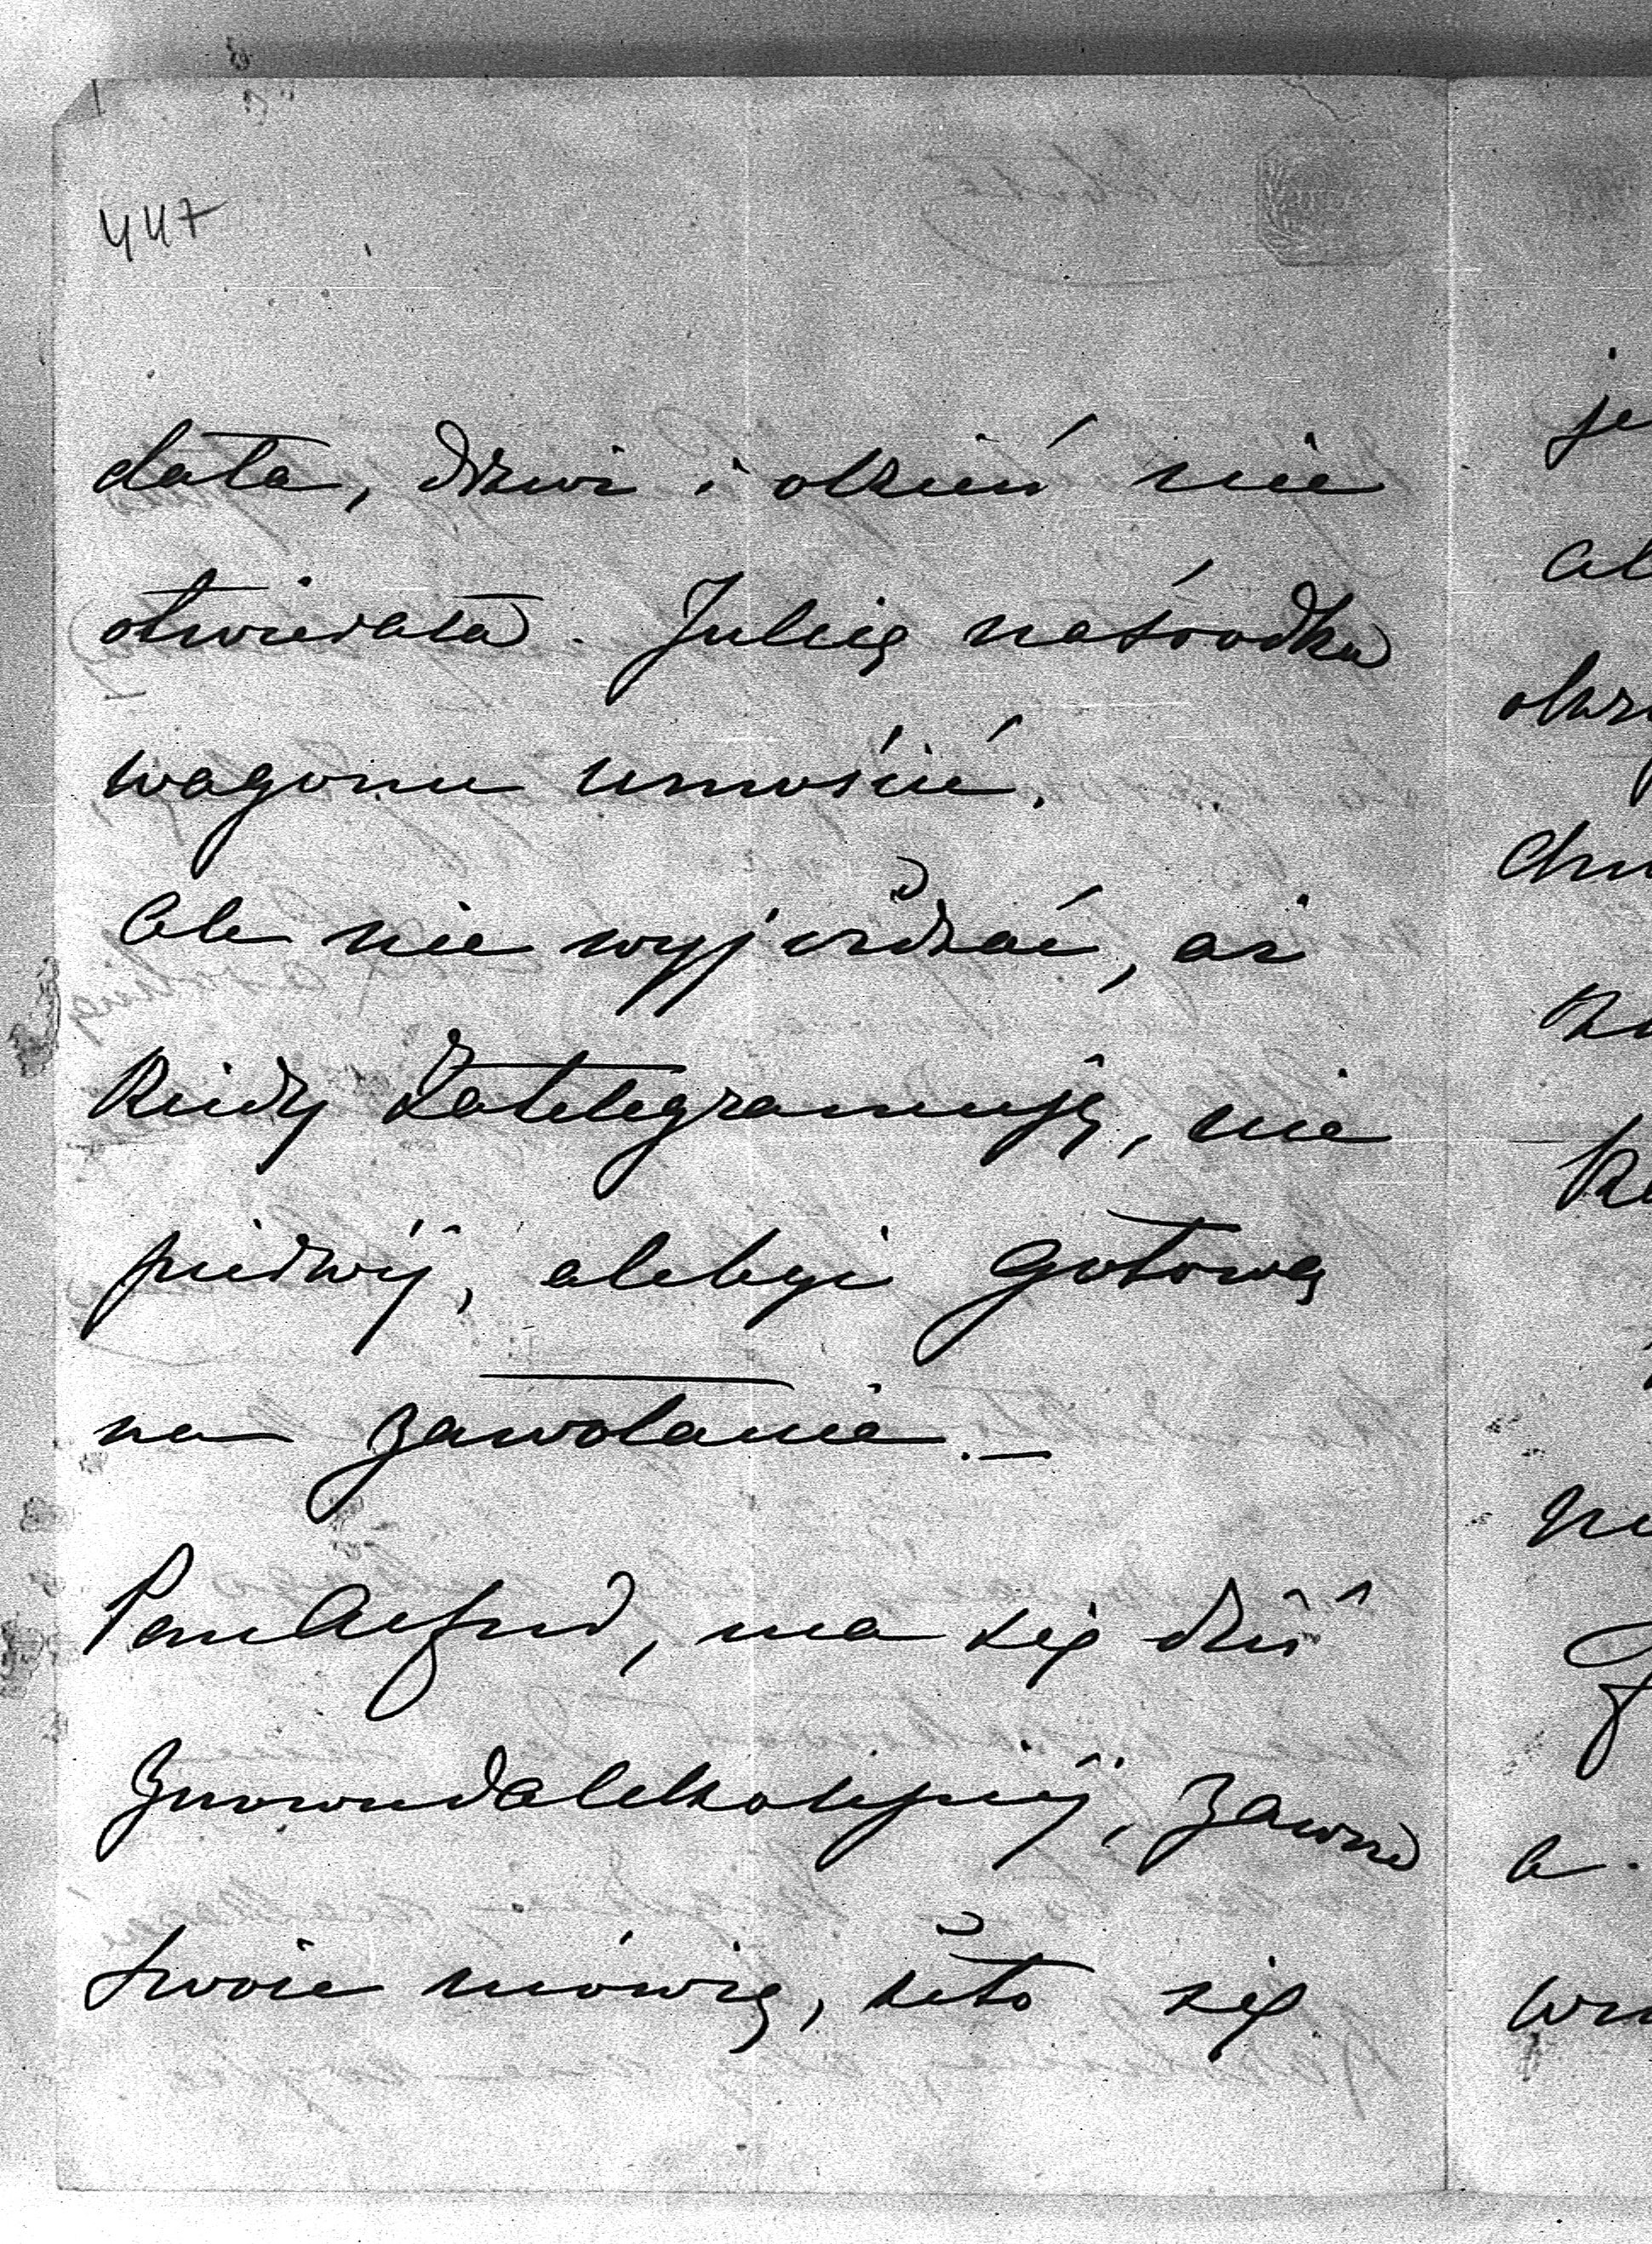 447
dała, drzwi i okien nie
otwierała. Julię naśrodku
wagonu umościć.
Ale nie wyjeżdżać, aż
kiedy zatelegramuję, nie
pierwéj, aleby być gotową
na zawołanie. —
Pan Alfred, ma się dziś
znowu daleko lepiéj, zawsze
swoie mówię, że to się